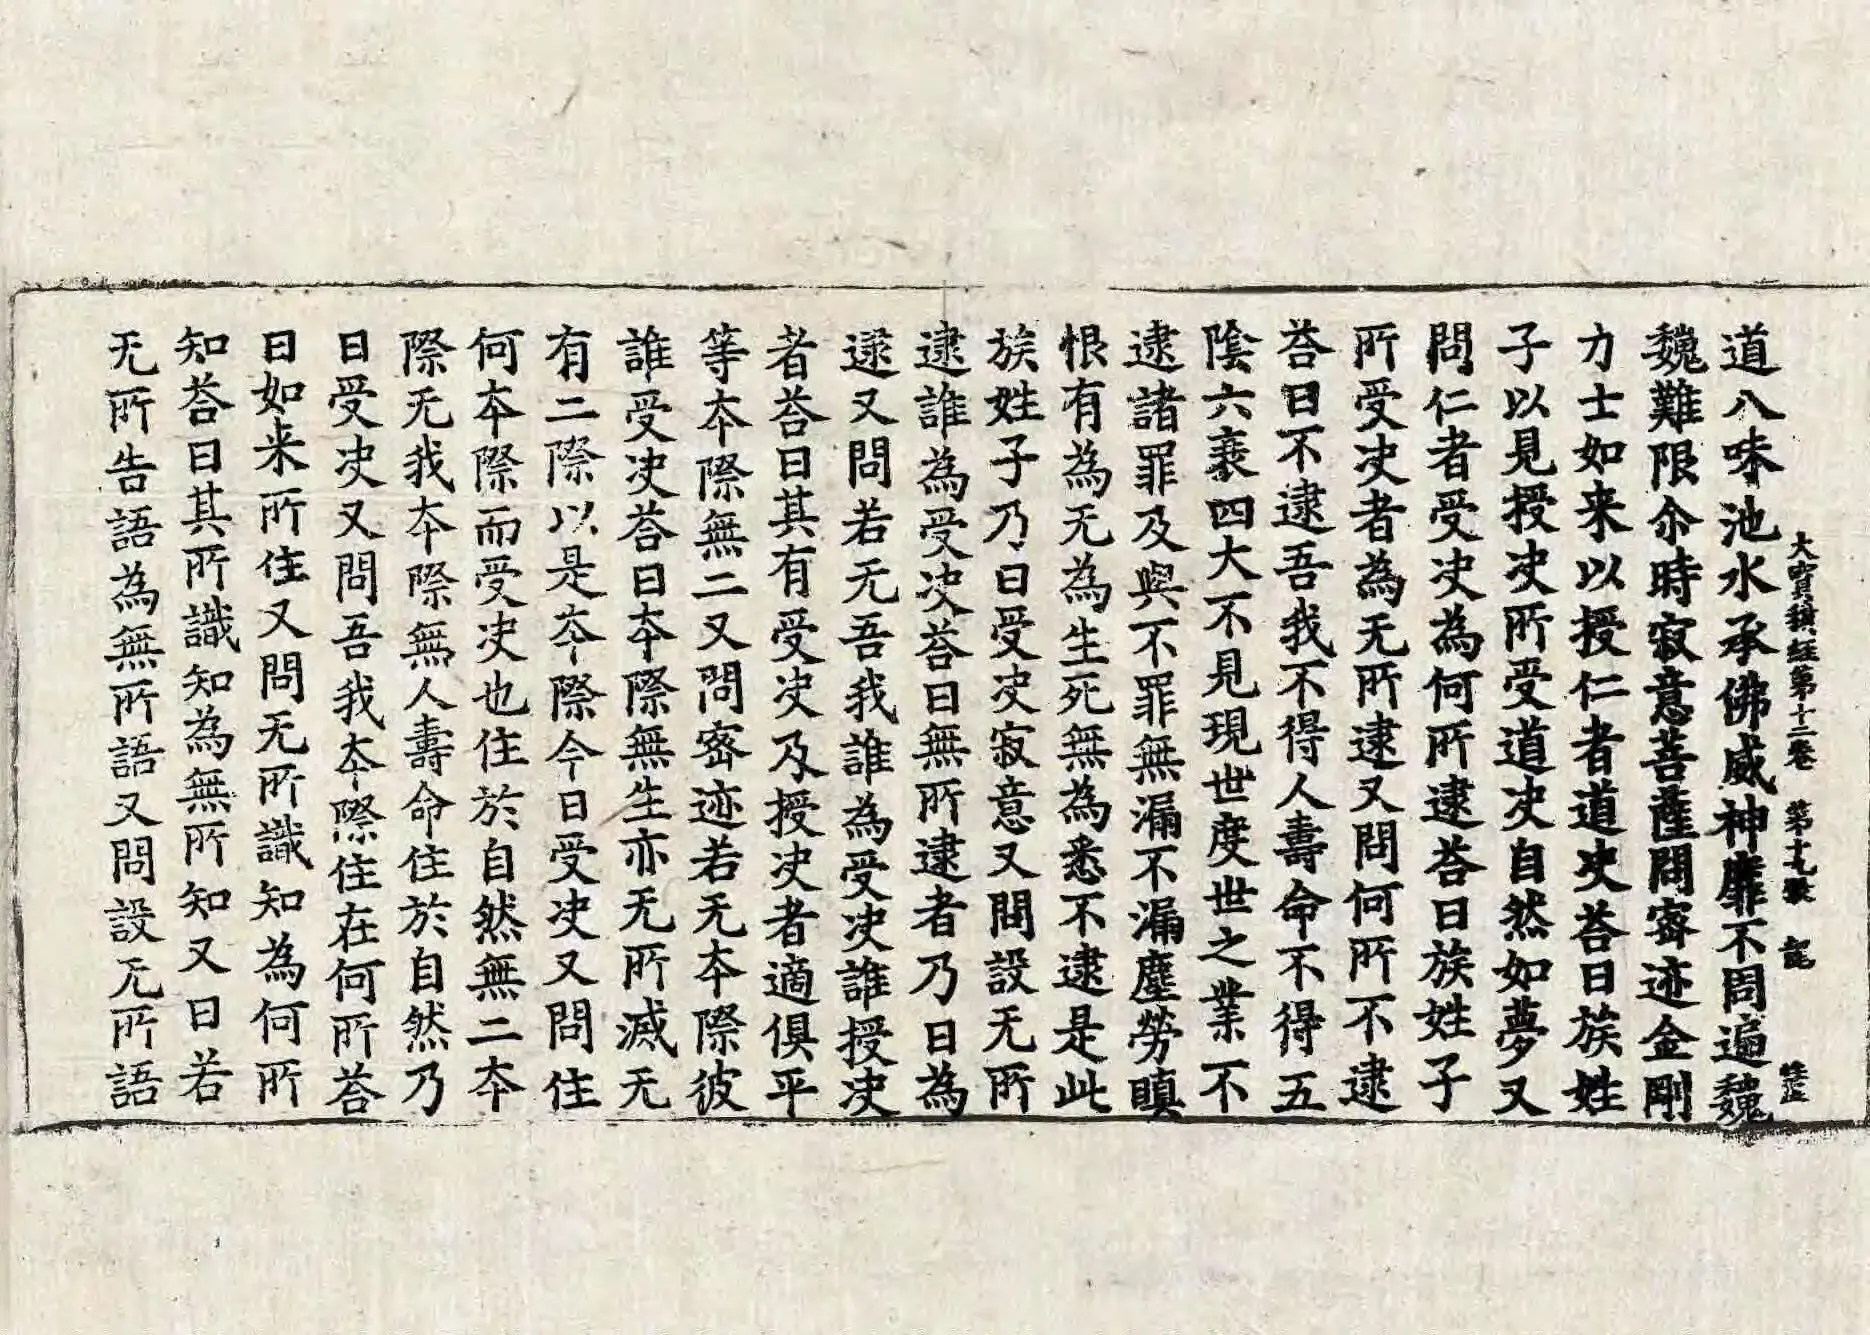 大寳積経第十二卷　第十九張
道八味池水承佛威神靡不周遍魏
魏難限尒時寂意菩薩問宻迹金剛
力士如来以授仁者道决荅曰族姓
子以見授决所受道决自然如夢又
問仁者受决為何所逮荅曰族姓子
所受决者為无所逮又問何所不逮
荅曰不逮吾我不得人壽命不得五
陰六衰四大不見現世度世之業不
逮諸罪及與不罪無漏不漏塵勞瞋
恨有為无為生死無為悉不逮是此
族姓子乃曰受决寂意又問設无所
逮誰為受决荅曰無所逮者乃曰為
逮又問若无吾我誰為受决誰授决
者荅曰其有受决及授决者適俱平
等夲際無二又問宻迹若无夲際彼
誰受决荅曰夲際無生亦无所滅无
有二際以是夲際今日受决又問住
何夲際而受决也住於自然無二夲
際无我夲際無人壽命住於自然乃
曰受决又問吾我夲際住在何所荅
曰如来所住又問无所識知為何所
知荅曰其所識知為無所知又曰若
无所告語為無所語又問設无所語